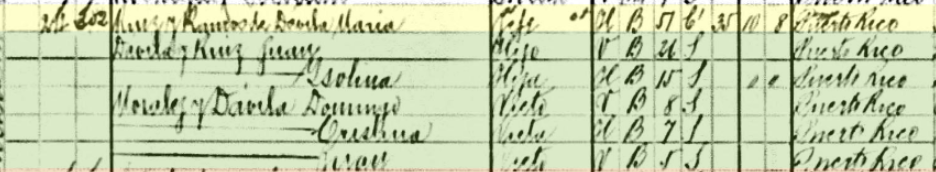 Cruz y Ramos de Davila Maria Jefe H B 51 C 35 10 8 Puerto Rico
Davila y Cruz Juan Hijo V B 26 S Puerto Rico
Isolina Hija H B 15 S Puerto Rico
Morales y Davila Domingo Nieto V B 8 S Puerto Rico
Cristina Nieta H B 7 S Puerto Rico
Juan Nieto V B 5 S Puerto Rico